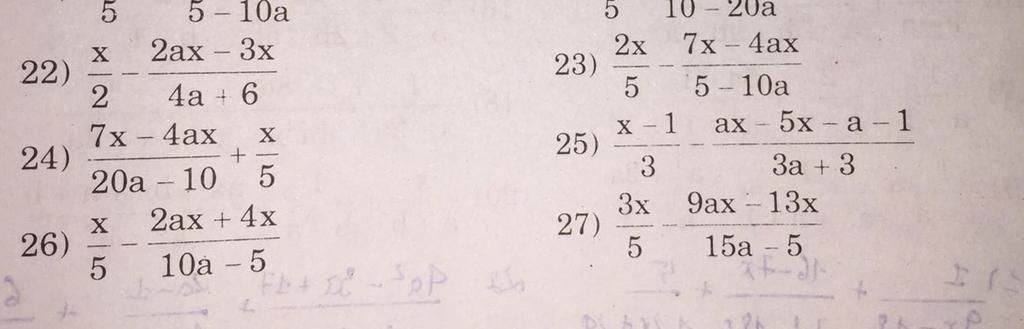 5   5 – 10a   5   10 – 20a
22) x/2 – (2ax – 3x)/(4a + 6)   23) 2x/5 – (7x – 4ax)/(5 – 10a)
24) (7x – 4ax)/(20a – 10) + x/5   25) (x – 1)/3 – (ax – 5x – a – 1)/(3a + 3)
26) x/5 – (2ax + 4x)/(10a – 5)   27) 3x/5 – (9ax – 13x)/(15a – 5)